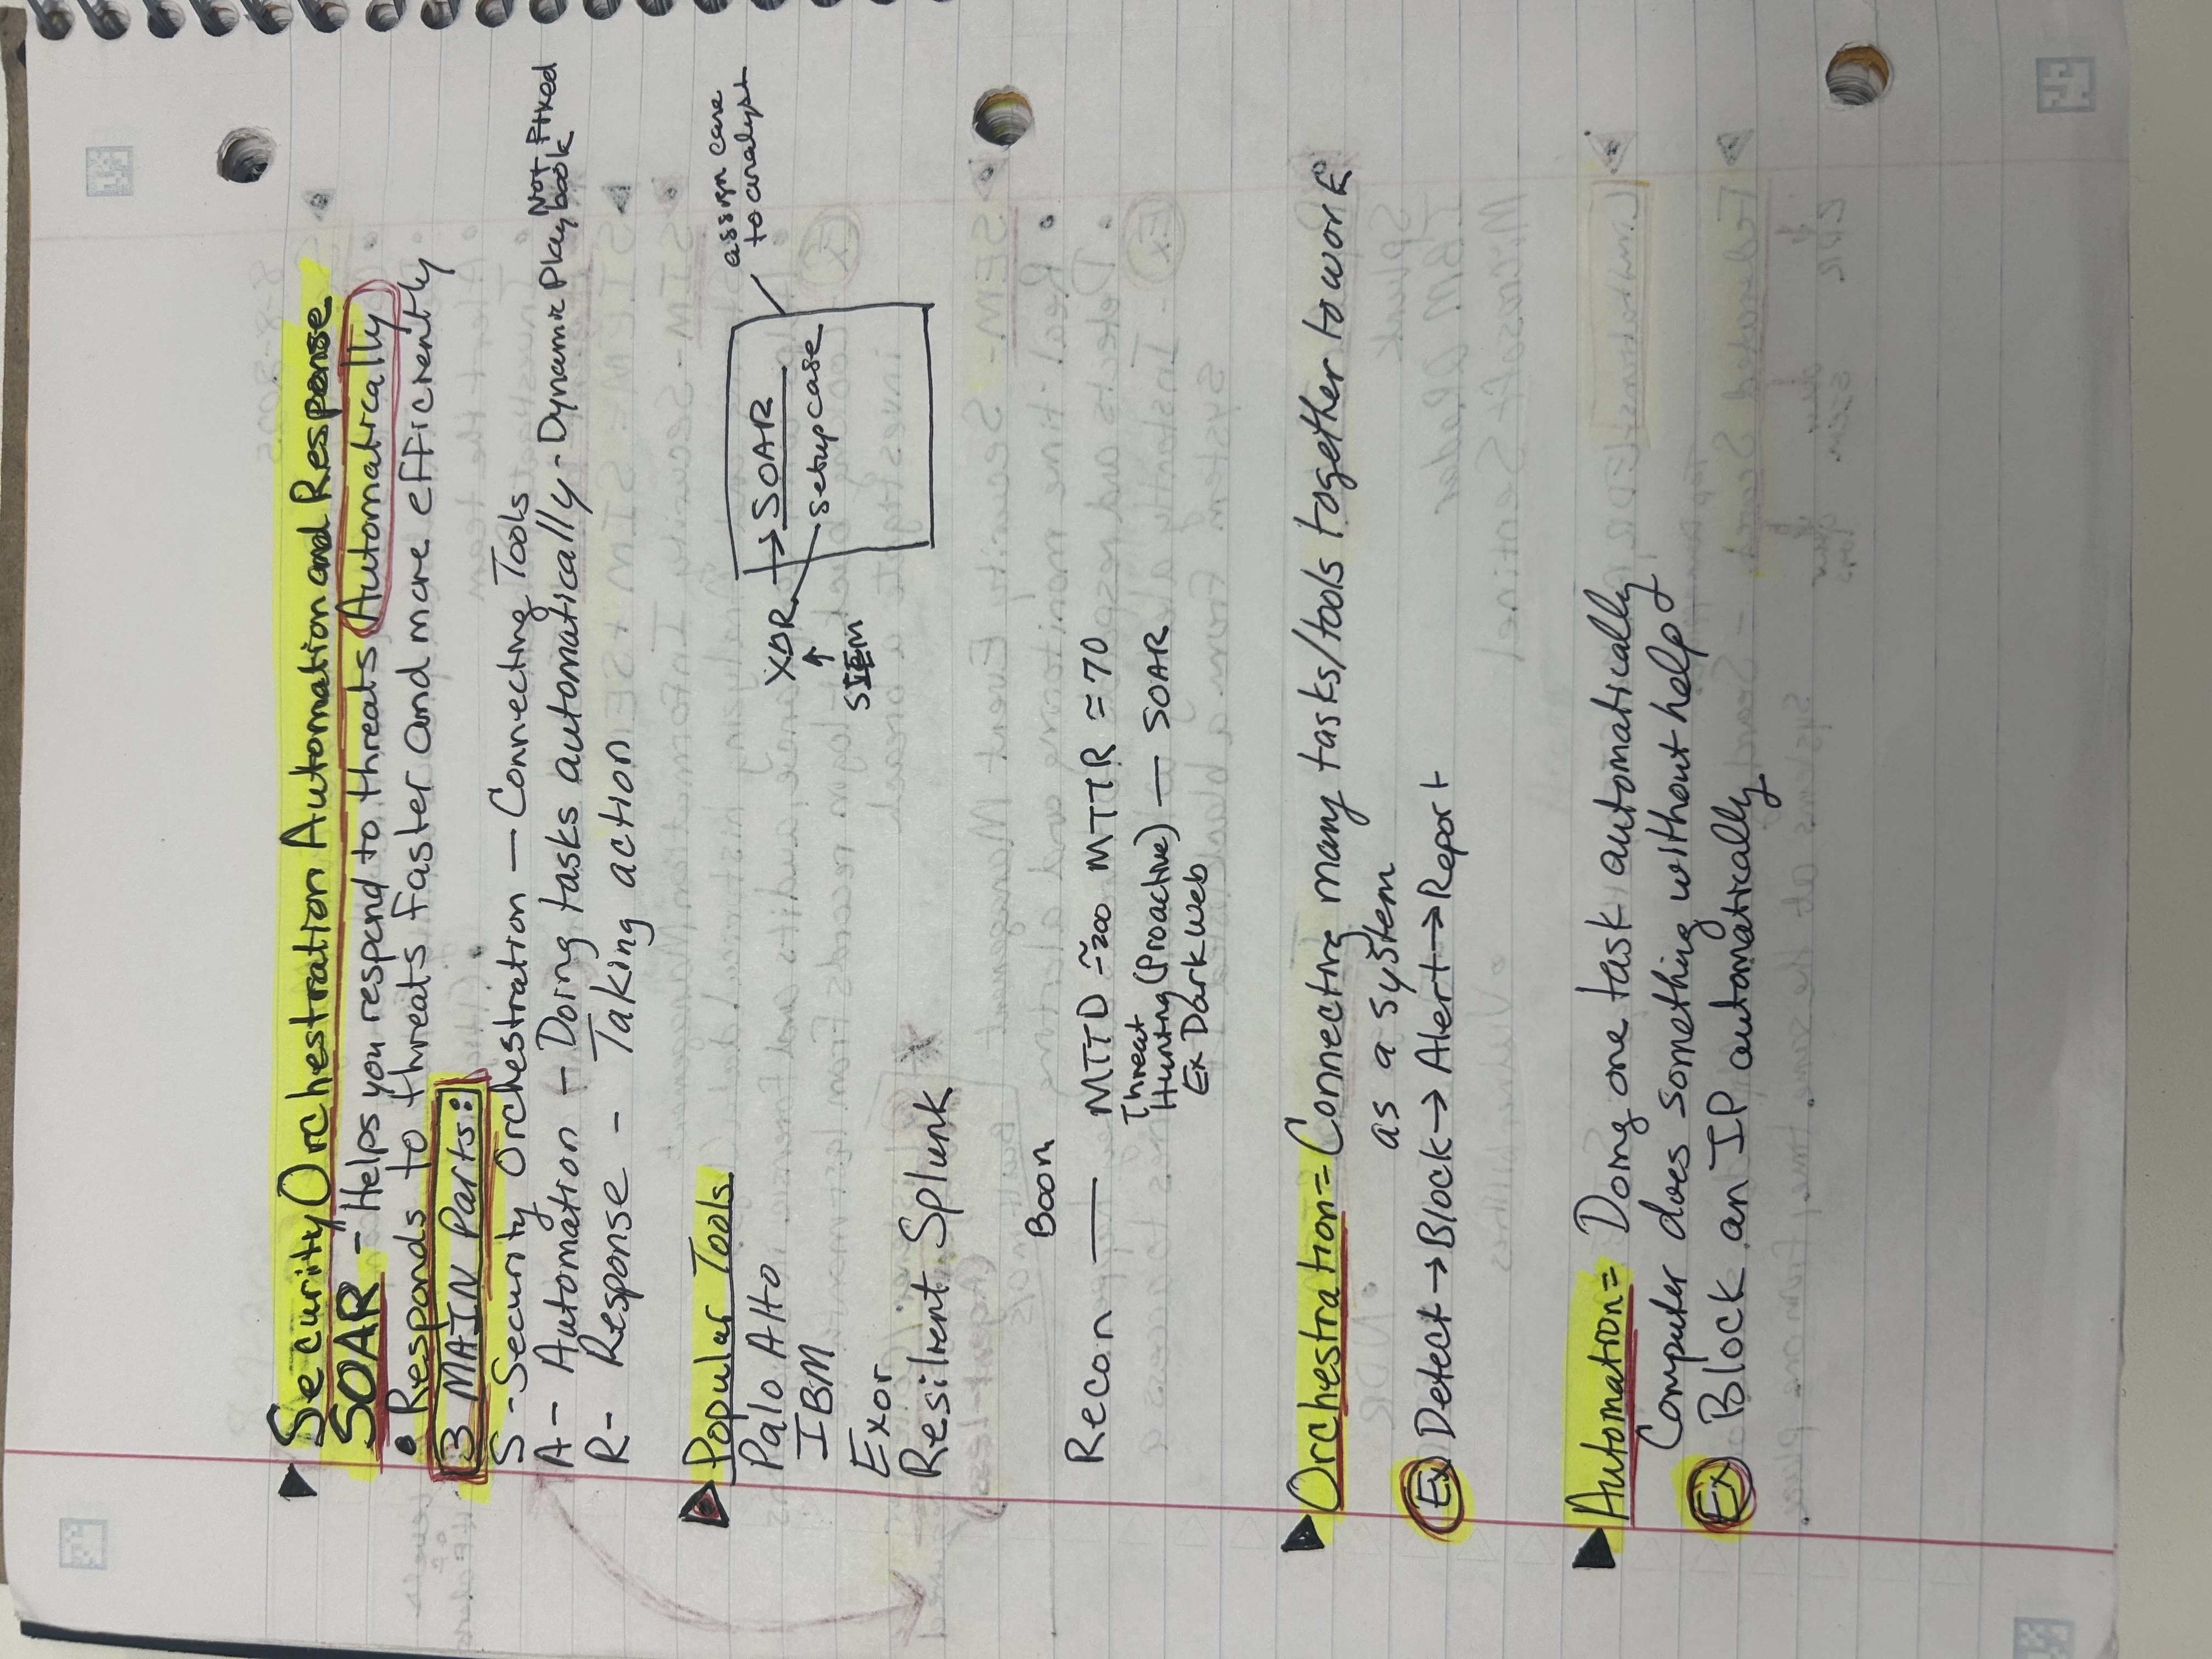 ▶ Security Orchestration Automation and Response
SOAR - Helps you respond to threats Automatically
• Responds to threats faster and more efficiently
3 MAIN Parts:
S - Security Orchestration — Connecting Tools
A - Automation - Doing tasks automatically - Dynamic Playbook Not Fixed
R - Response - Taking action
▶ Popular Tools
Palo Alto
IBM
Exor
Resilient Splunk
XDR → SOAR
setup case
SIEM
assign case
to analyst
Boom
Recon — MTTD ≈200 MTTR ≈70
Threat
Hunting (Proactive) — SOAR
Ex Dark Web
▶ Orchestration = Connecting many tasks/tools together to work
as a system
Ex Detect → Block → Alert → Report
▶ Automation = Doing one task automatically
Computer does something without help
Ex Block an IP automatically